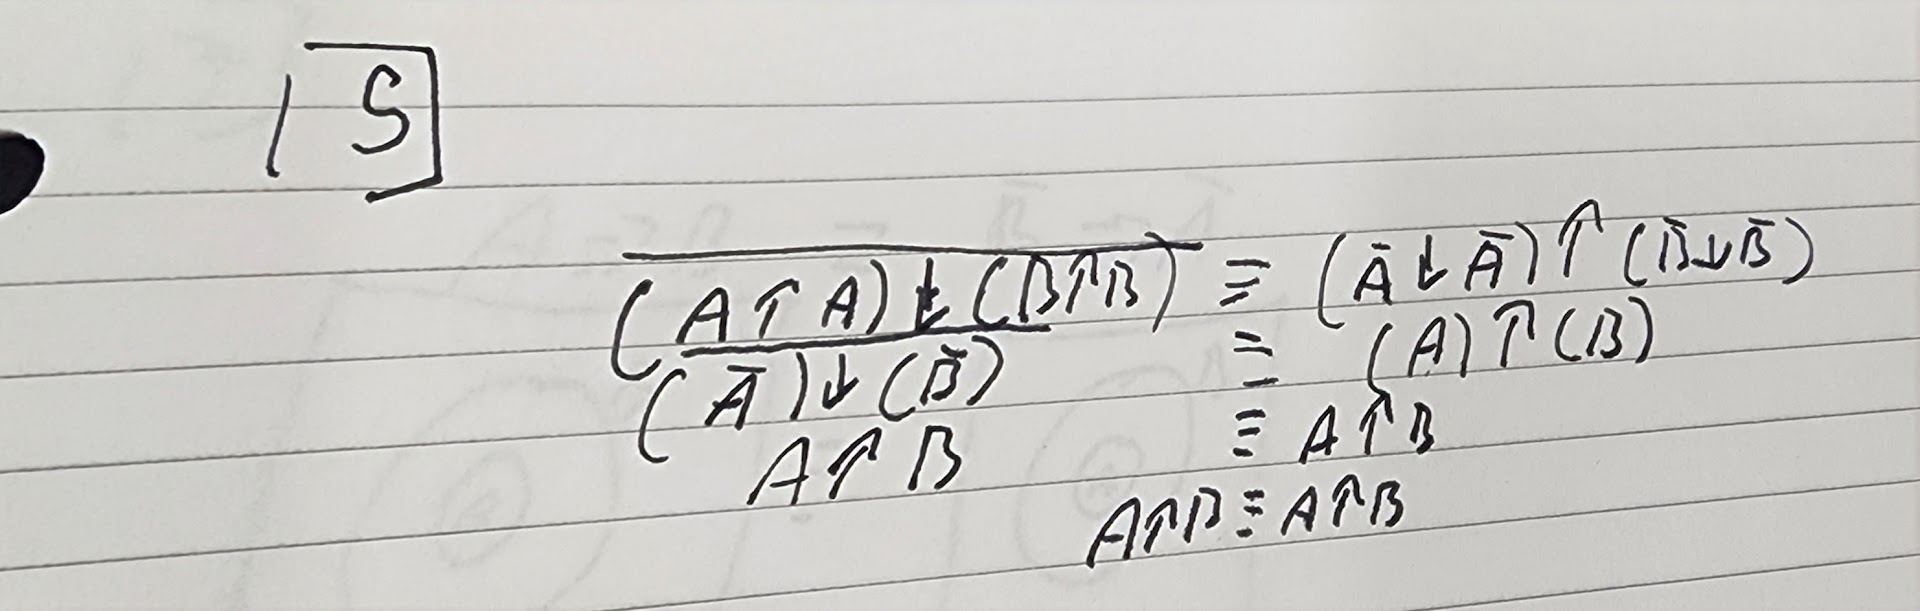 15]
(A↑A)↓(B↑B) ≡ (Ā↓Ā)↑(B̄↓B̄)
(Ā)↓(B̄) ≡ (A)↑(B)
A↑B ≡ A↑B
A↑B ≡ A↑B